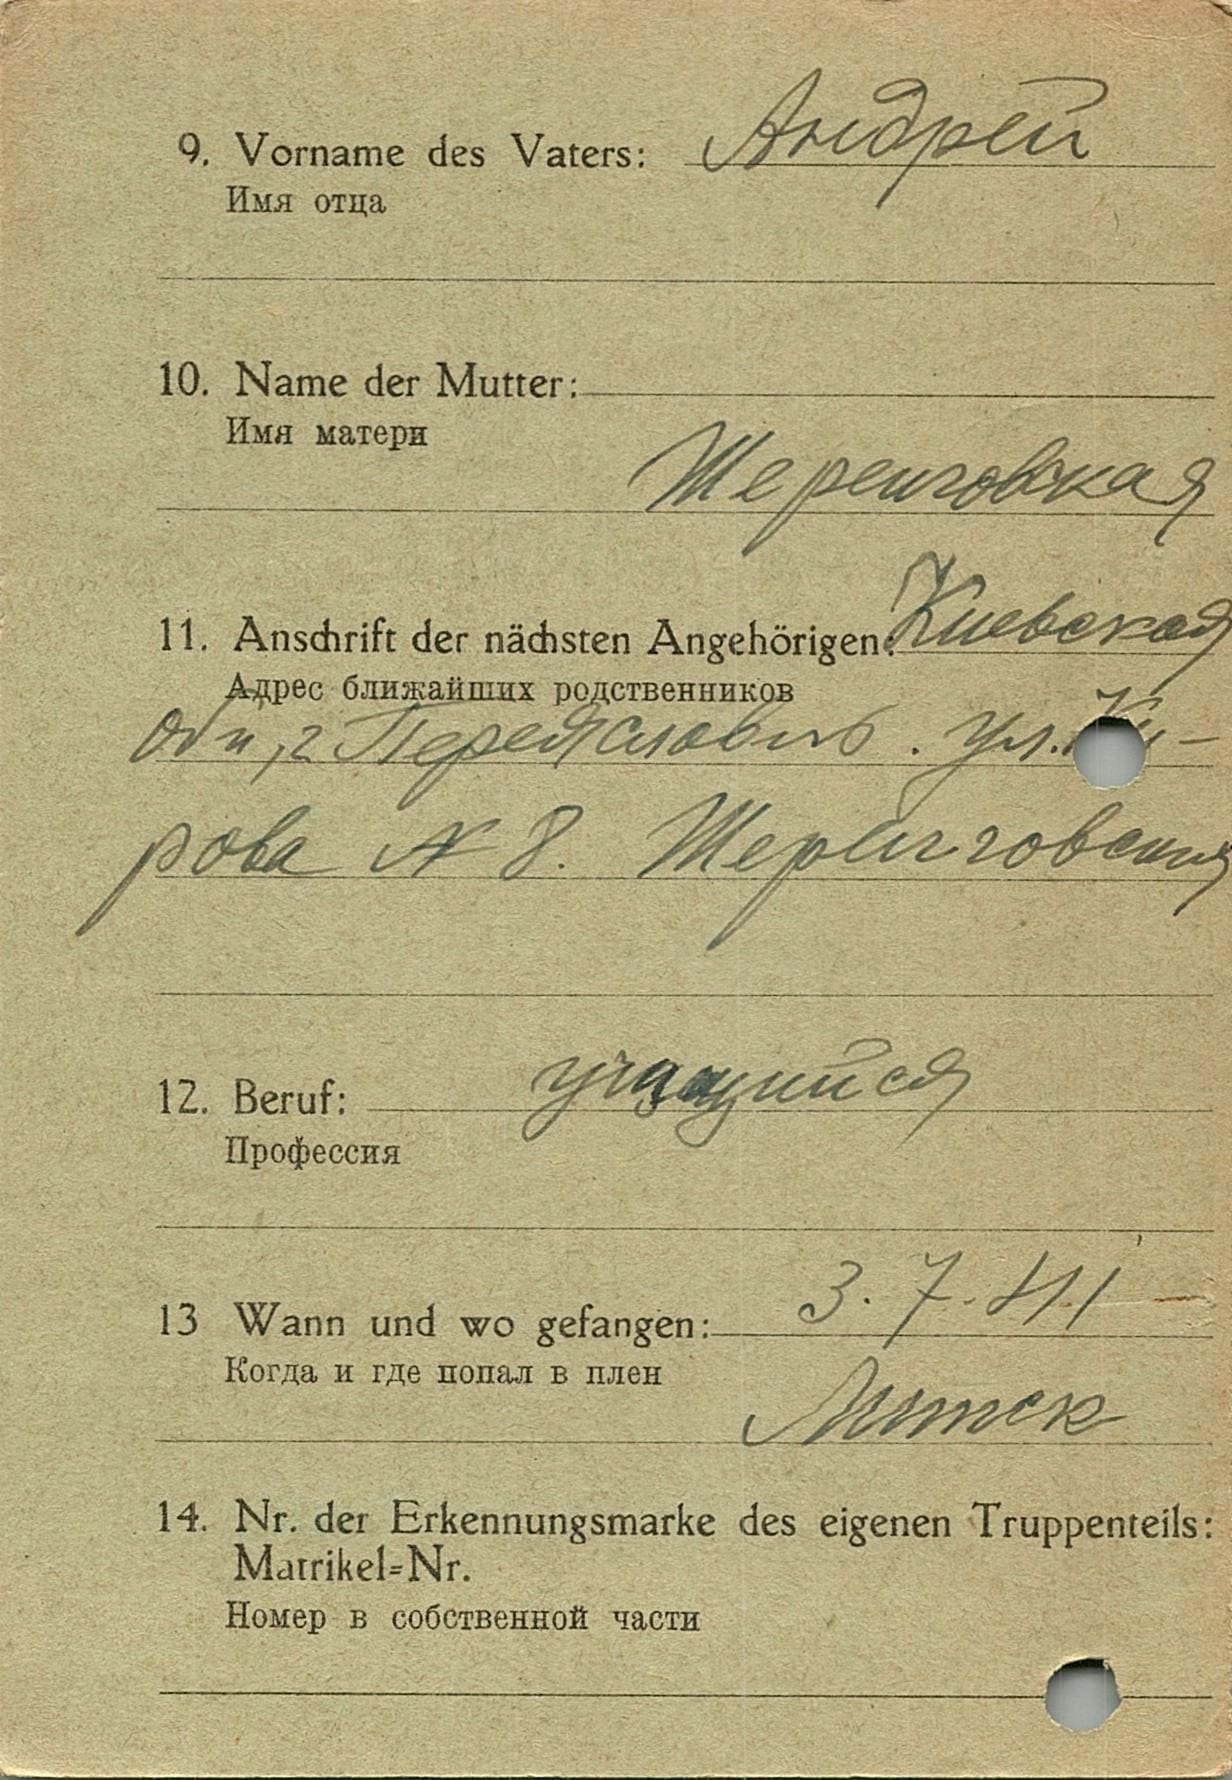 9. Vorname des Vaters: Андрей
Имя отца
10. Name der Mutter:
Имя матери
11. Anschrift der nächsten Angehörigen: Киевская
Адрес ближайших родственников
обл, г Переяславль. ул. Ки-
рова № 8.
12. Beruf: учащийся
Профессия
13 Wann und wo gefangen: 3.7.41
Когда и где попал в плен
14. Nr. der Erkennungsmarke des eigenen Truppenteils:
Matrikel=Nr.
Номер в собственной части